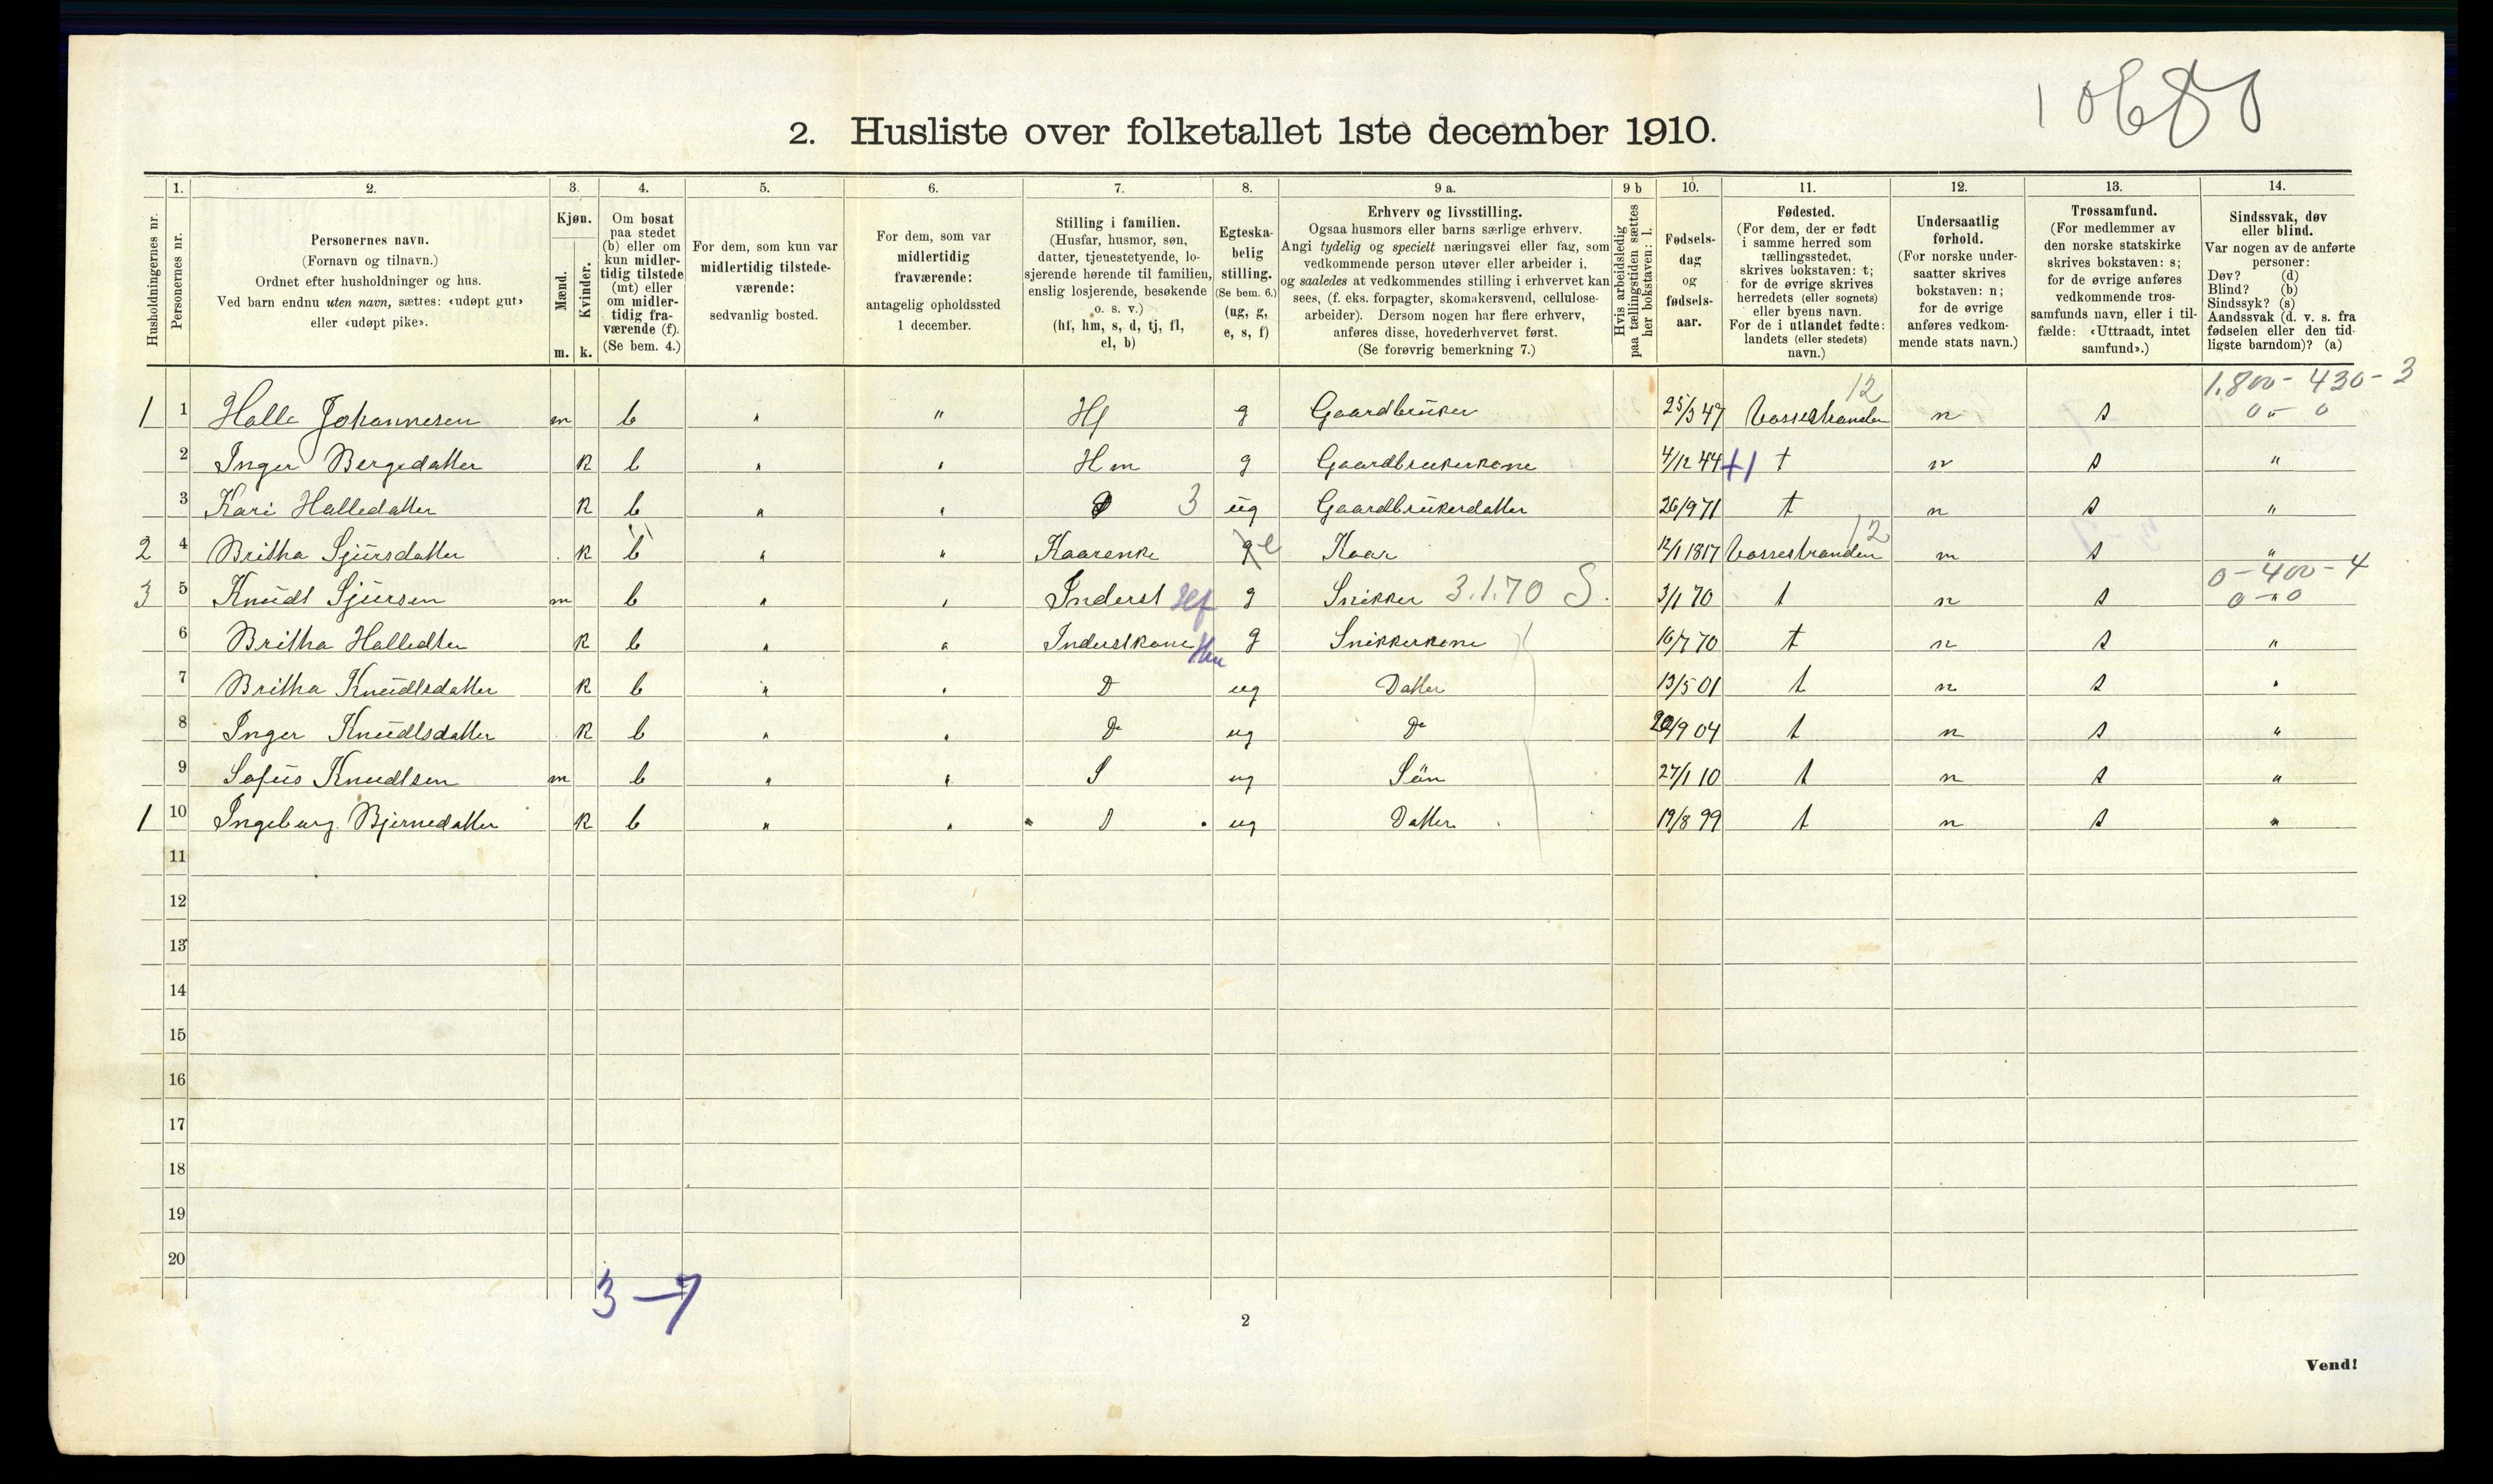 10680
2. Husliste over folketallet 1ste december 1910.
Husholdningernes nr.
1.
Personernes nr.
2.
Personernes navn.
(Fornavn og tilnavn.)
Ordnet efter husholdninger og hus.
Ved barn endnu uten navn, sættes: «udøpt gut»
eller «udøpt pike».
3.
Kjøn.
Mænd.
Kvinder.
m. k.
4.
Om bosat
paa stedet
(b) eller om
kun midler-
tidig tilstede
(mt) eller
om midler-
tidig fra-
værende (f).
(Se bem. 4.)
5.
For dem, som kun var
midlertidig tilstede-
værende:
sedvanlig bosted.
6.
For dem, som var
midlertidig
fraværende:
antagelig opholdssted
1 december.
7.
Stilling i familien.
(Husfar, husmor, søn,
datter, tjenestetyende, lo-
sjerende hørende til familien,
enslig losjerende, besøkende
o. s. v.)
(hf, hm, s, d, tj, fl,
el, b)
8.
Egteska-
belig
stilling.
(Se bem. 6.)
(ug, g,
e, s, f)
9 a.
Erhverv og livsstilling.
Ogsaa husmors eller barns særlige erhverv.
Angi tydelig og specielt næringsvei eller fag, som
vedkommende person utøver eller arbeider i,
og saaledes at vedkommendes stilling i erhvervet kan
sees, (f. eks. forpagter, skomakersvend, cellulose-
arbeider). Dersom nogen har flere erhverv,
anføres disse, hovederhvervet først.
(Se forøvrig bemerkning 7.)
9 b
Hvis arbeidsledig
paa tællingstiden sættes
her bokstaven: l.
10.
Fødsels-
dag
og
fødsels-
aar.
11.
Fødested.
(For dem, der er født
i samme herred som
tællingsstedet,
skrives bokstaven: t;
for de øvrige skrives
herredets (eller sognets)
eller byens navn.
For de i utlandet fødte:
landets (eller stedets)
navn.)
12.
Undersaatlig
forhold.
(For norske under-
saatter skrives
bokstaven: n;
for de øvrige
anføres vedkom-
mende stats navn.)
13.
Trossamfund.
(For medlemmer av
den norske statskirke
skrives bokstaven: s;
for de øvrige anføres
vedkommende tros-
samfunds navn, eller i til-
fælde: «Uttraadt, intet
samfund».)
14.
Sindssvak, døv
eller blind.
Var nogen av de anførte
personer:
Døv? (d)
Blind? (b)
Sindssyk? (s)
Aandssvak (d. v. s. fra
fødselen eller den tid-
ligste barndom)? (a)
12 1.800 - 430 - 3
1 1 Halle Johannesen m b " " Hf g Gaardbruker 25/3 47 Vossestranden n s 0 " 0
2 Inger Bergedatter k b " " Hm g Gaardbrukerkone 4/12 44 +1 t n s "
3 Kari Halledatter k b " " D 3 ug Gaardbrukerdatter 26/9 71 t n s "
12
2 4 Britha Sjursdatter k b " " Kaarenke g e Kaar 12/1 1817 Vossestranden n s "
0 - 400 - 4
3 5 Knudt Sjursen m b " " Inderst Hf g Snikker 3.1.70 S. 3/1 70 t n s 0 " 0
6 Britha Halledtr k b " " Inderstkone Hm g Snikkerkone 16/7 70 t n s "
7 Britha Knudtsdatter k b " " D ug Datter 13/5 01 t n s "
8 Inger Knudtsdatter k b " " Do ug Do 20/9 04 t n s "
9 Sofus Knudtsen m b " " S ug Sön 27/1 10 t n s "
1 10 Ingeburg Bjernedatter k b " " D ug Datter 19/8 99 t n s "
11
12
13
14
15
16
17
18
19
20
3 - 7
2
Vend!